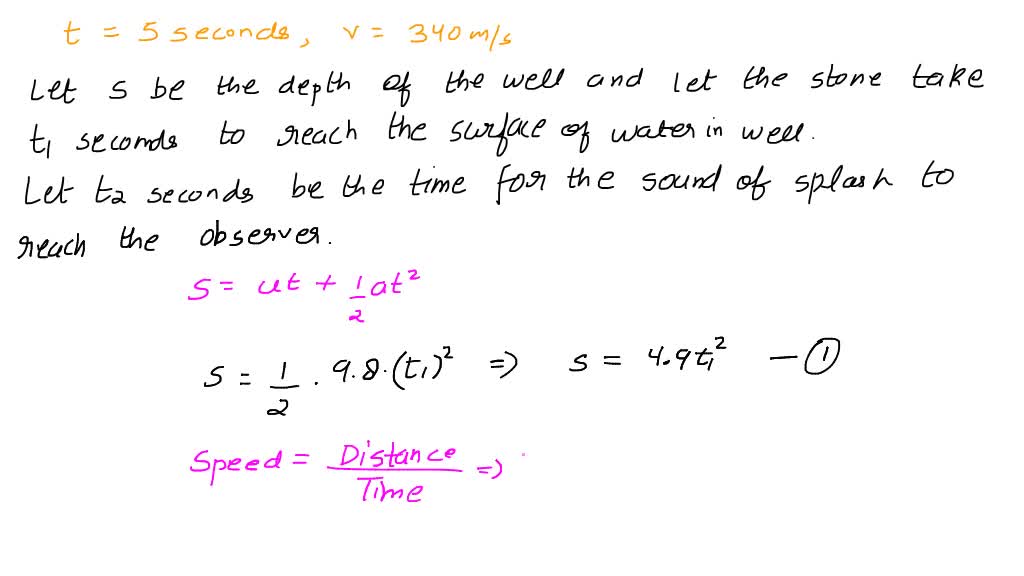 t = 5 seconds, v = 340 m/s
Let s be the depth of the well and let the stone take
t₁ seconds to reach the surface of water in well.
Let t₂ seconds be the time for the sound of splash to
reach the observer.
S = ut + 1/2 at²
S = 1/2 · 9.8 · (t₁)² => s = 4.9t₁² — ①
Speed = Distance/Time =>